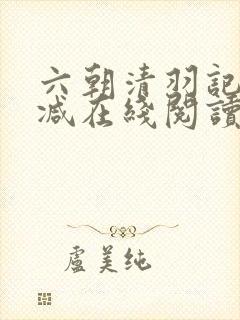 六朝清羽記
减在綫閱讀
盧美纯